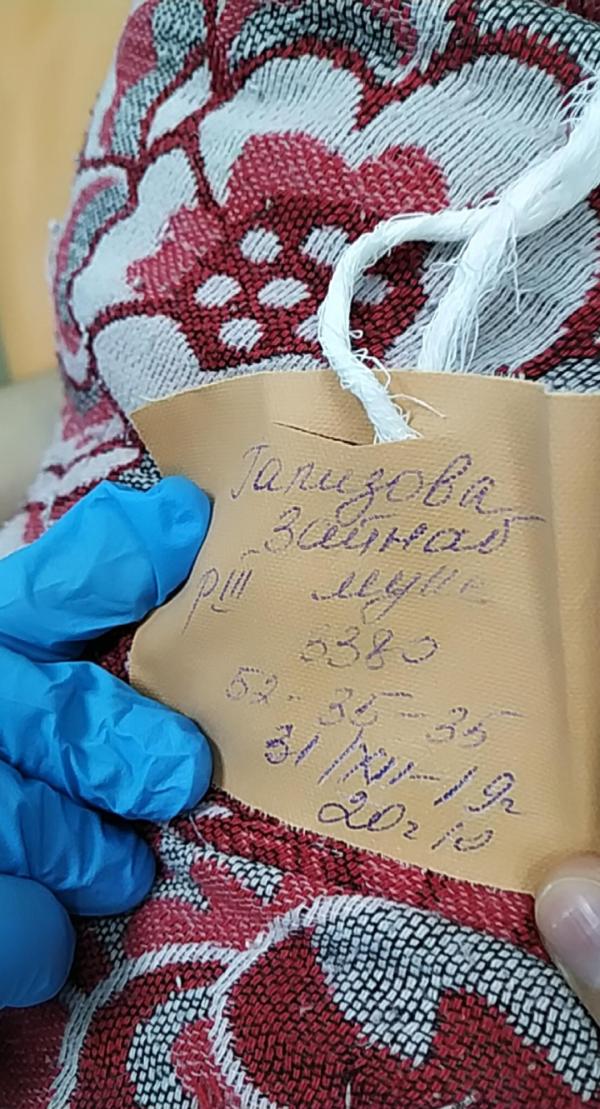 Гапизова
Зайнаб
рIII
3380
52-35-35
31/XII-19г
20г 10